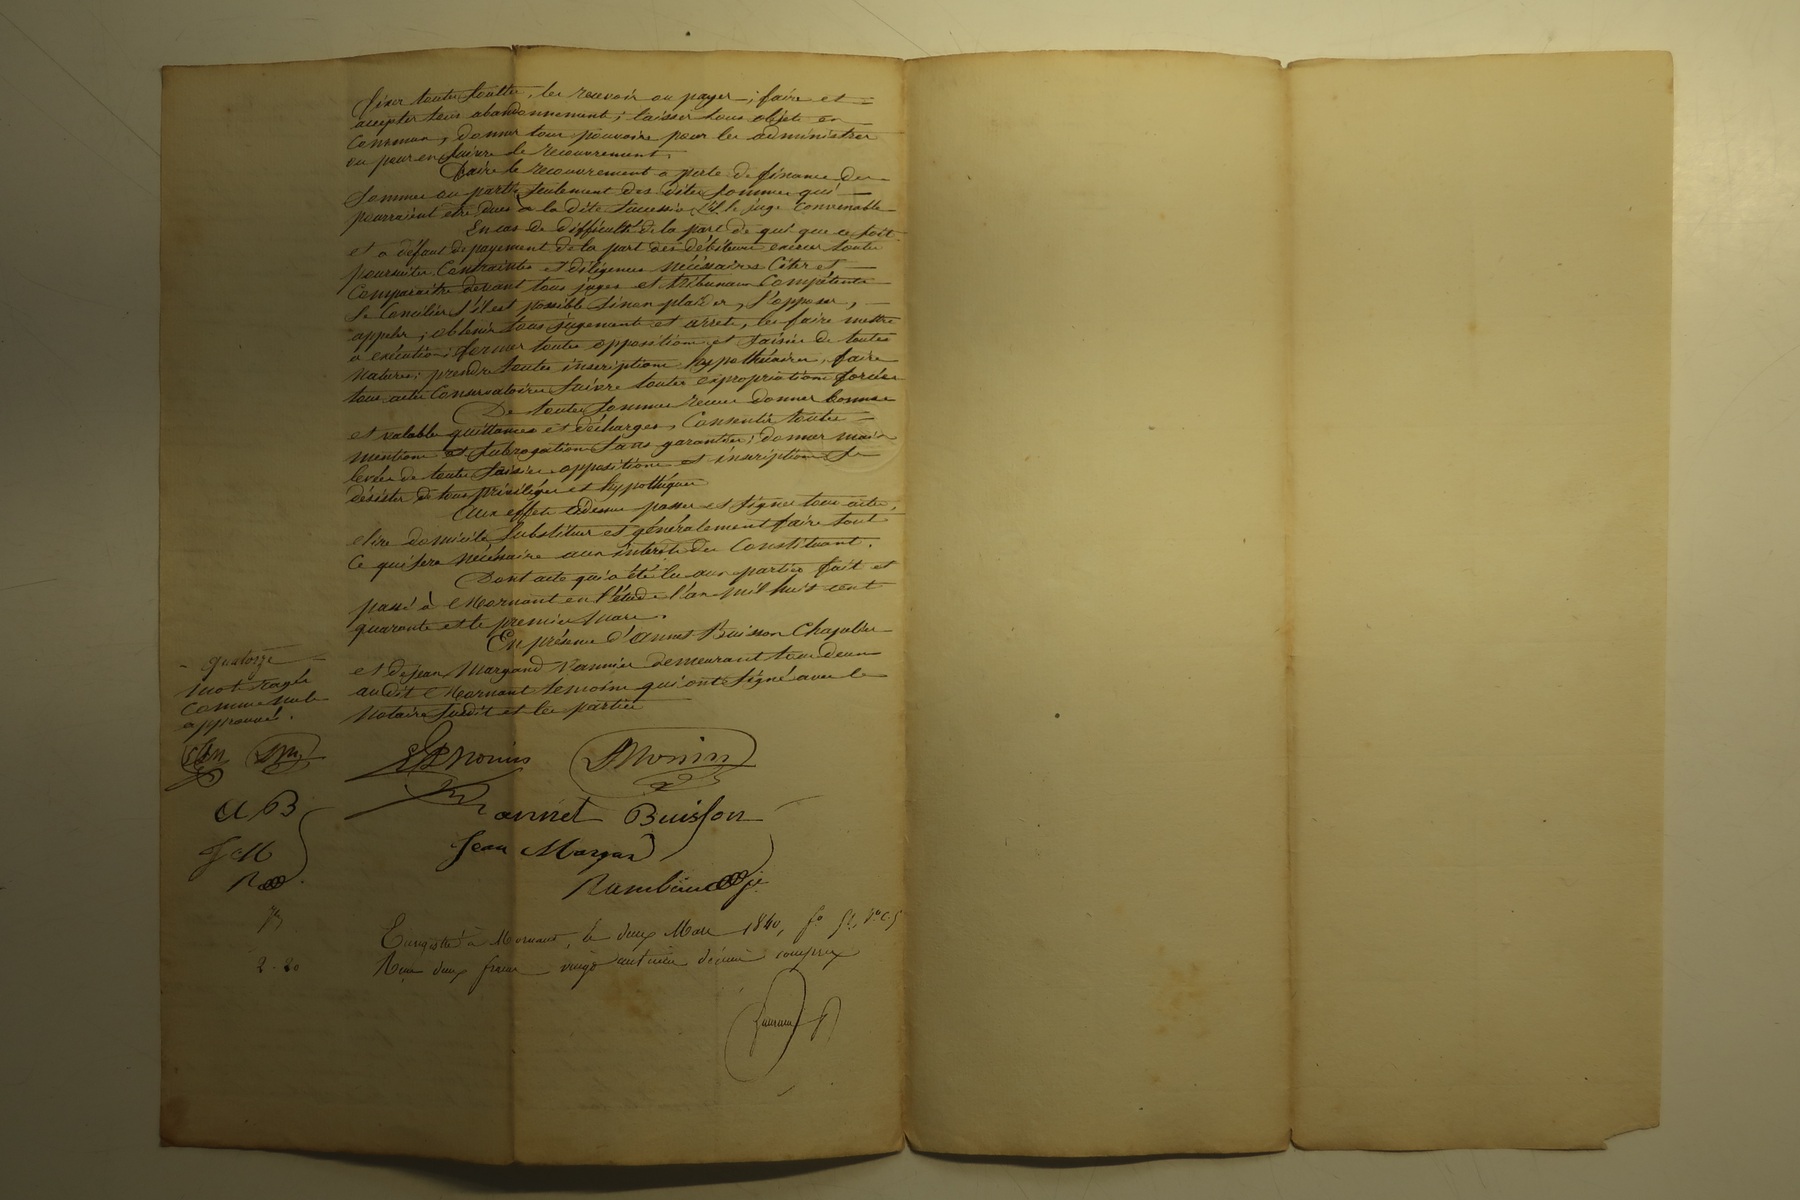 fixer toutes soultes, les recevoir ou payer; faire et
accepter tous abandonnements; laisser tous objets en
Commun, donner tous pouvoirs pour les administrer
ou pour en suivre le recouvrement.
Faire le recouvrement à perte de finance des
Sommes ou partie seulement des dites sommes qui
pourraient être dues à la dite succession s'il le juge Convenable
En cas de difficulté de la part de qui que ce soit
et à défaut de payement de la part des débiteurs exercer toutes
poursuites Contraintes et diligences nécessaires Citer et
Comparaitre devant tous juges et tribunaux Compétents
Se Concilier s'il est possible sinon plaider, s'opposer,
appeler, obtenir tous jugements et arrets, les faire mettre
à exécution; former toutes oppositions et saisies de toutes
Natures; prendre toutes inscriptions hypothécaires, faire
tous actes Conservatoires suivre toutes expropriations forcées
De toutes sommes recues donner bonnes
et valables quittances et décharges, Consentir toutes
mentions et subrogations sans garantie; donner main
levée de toutes saisies oppositions et inscriptions se
désister de tous privilèges et hypothèques
Aux effets cidessus passer et signer tous actes,
elire domicile substituer et généralement faire tout
Ce qui sera nécessaire aux intérêts du Constituant.
Dont acte qui a été lu aux parties fait et
passé à Mornant en l'étude l'an mil huit cent
quarante et le premier mars.
En présence d'Annet Buisson Chapelier
et de Jean Margand Vannier demeurant tous deux
au dit Mornant témoins qui ont signé avec le
Notaire susdit et les parties
quatorze
mots rayés
comme nuls
approuvés.
Monin
Monin
AB
annet Buisson
JM
Jean Margan
R
73
Enregistré à Mornant, le deux Mars 1840, f°
2.20
Reçu deux francs vingt centimes décime compris